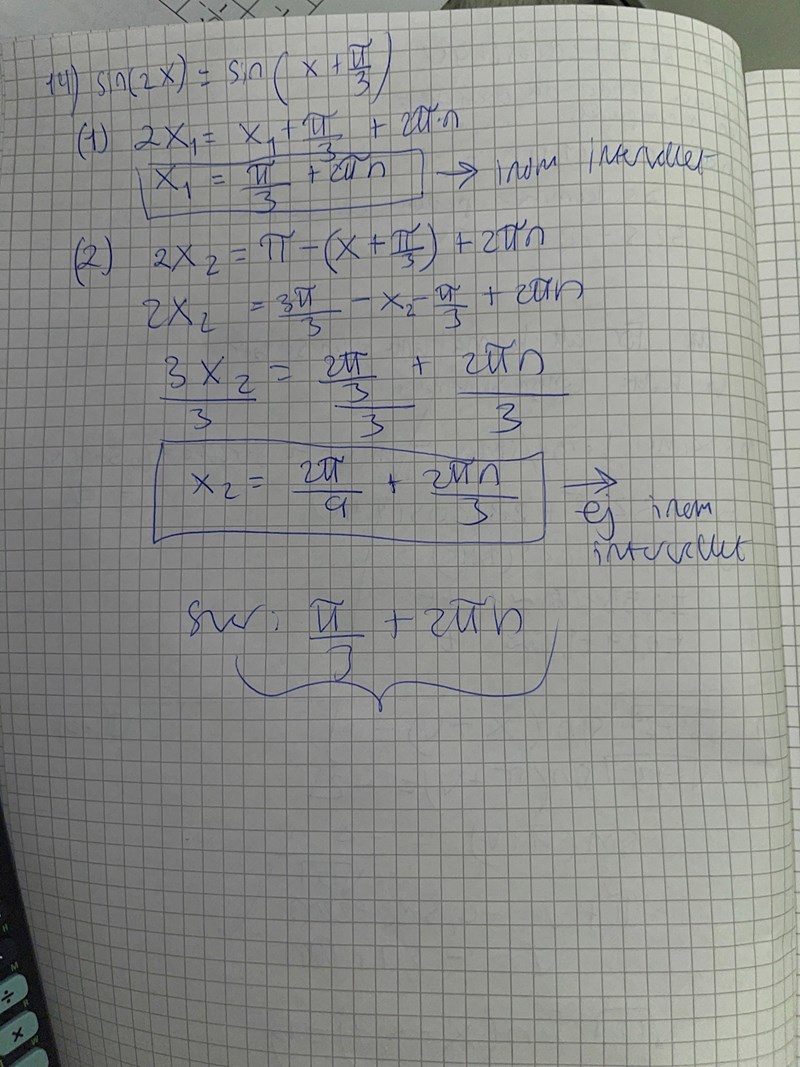 14) sin(2x) = sin(x + π/3)
(1) 2x₁ = x₁ + π/3 + 2π·n
x₁ = π/3 + 2πn → inom intervallet
(2) 2x₂ = π - (x + π/3) + 2πn
2x₂ = 3π/3 - x₂ - π/3 + 2πn
3x₂/3 = (2π/3)/3 + 2πn/3
x₂ = 2π/9 + 2πn/3 →
ej inom
intervallet
svar: π/3 + 2πn